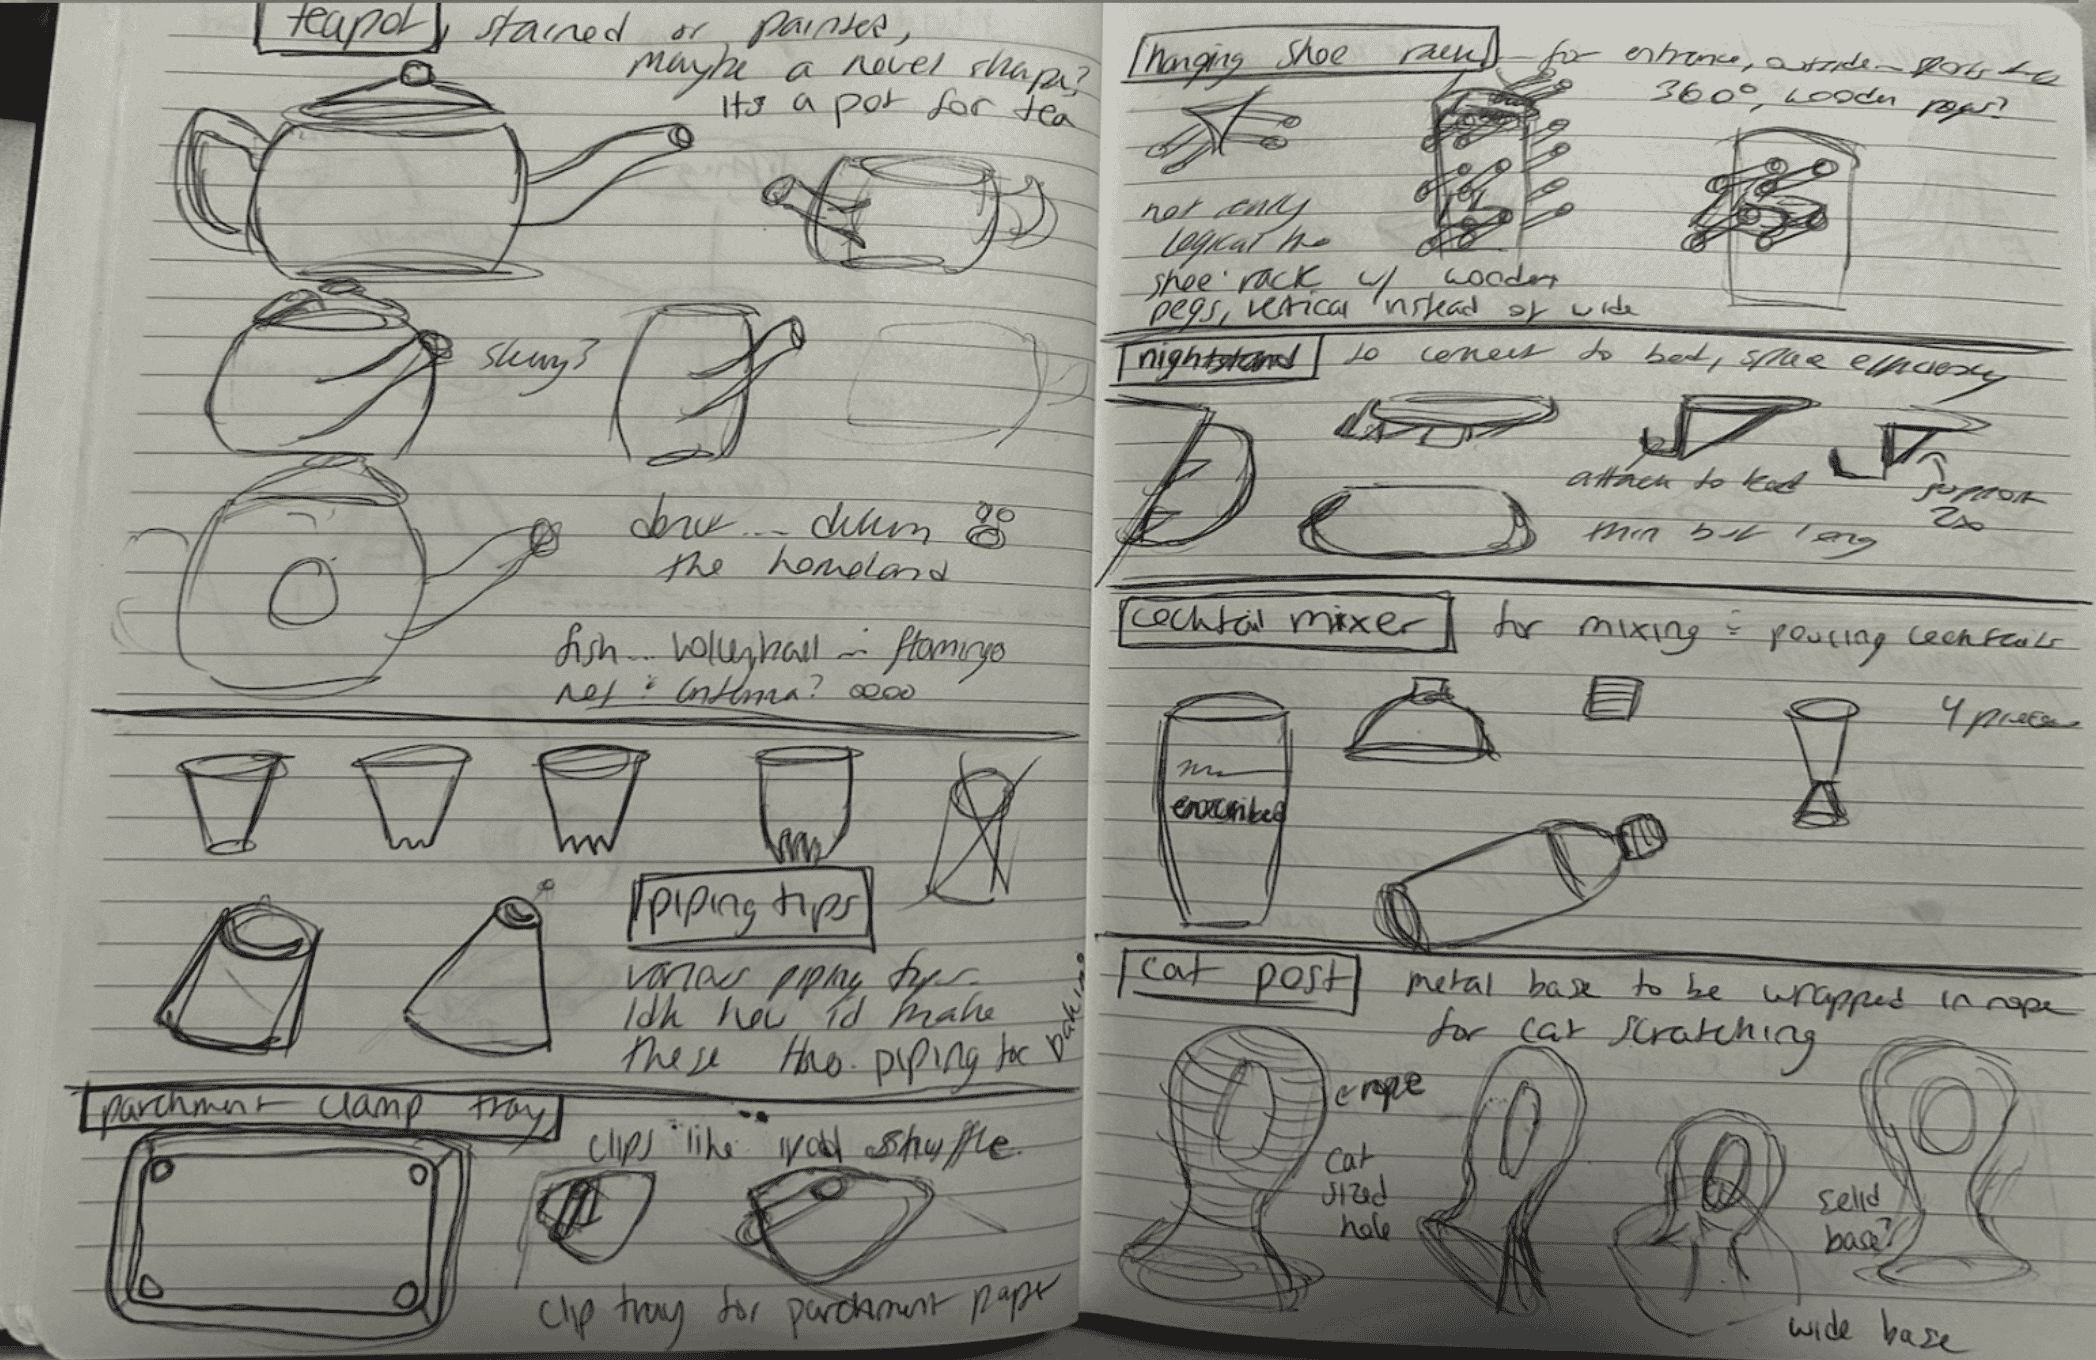 teapot, stained or painted,
maybe a novel shape?
its a pot for tea
donut
the homeland
fish... volleyball... flamingo
net antenna?
piping tips
various piping tips.
idk how id make
these tho. piping for baking
parchment clamp tray
clips like ipod shuffle.
clip tray for parchment paper
hanging shoe rack for entrance, outside
360°, wooden pegs?
not only
logical
shoe rack w/ wooden
pegs, vertical instead of wide
nightstand to connect to bed, space efficiency
attach to bed
support
2x
thin but long
cocktail mixer for mixing & pouring cocktails
4 pieces
cat post metal base to be wrapped in rope
for cat scratching
rope
cat
sized
hole
solid
base?
wide base